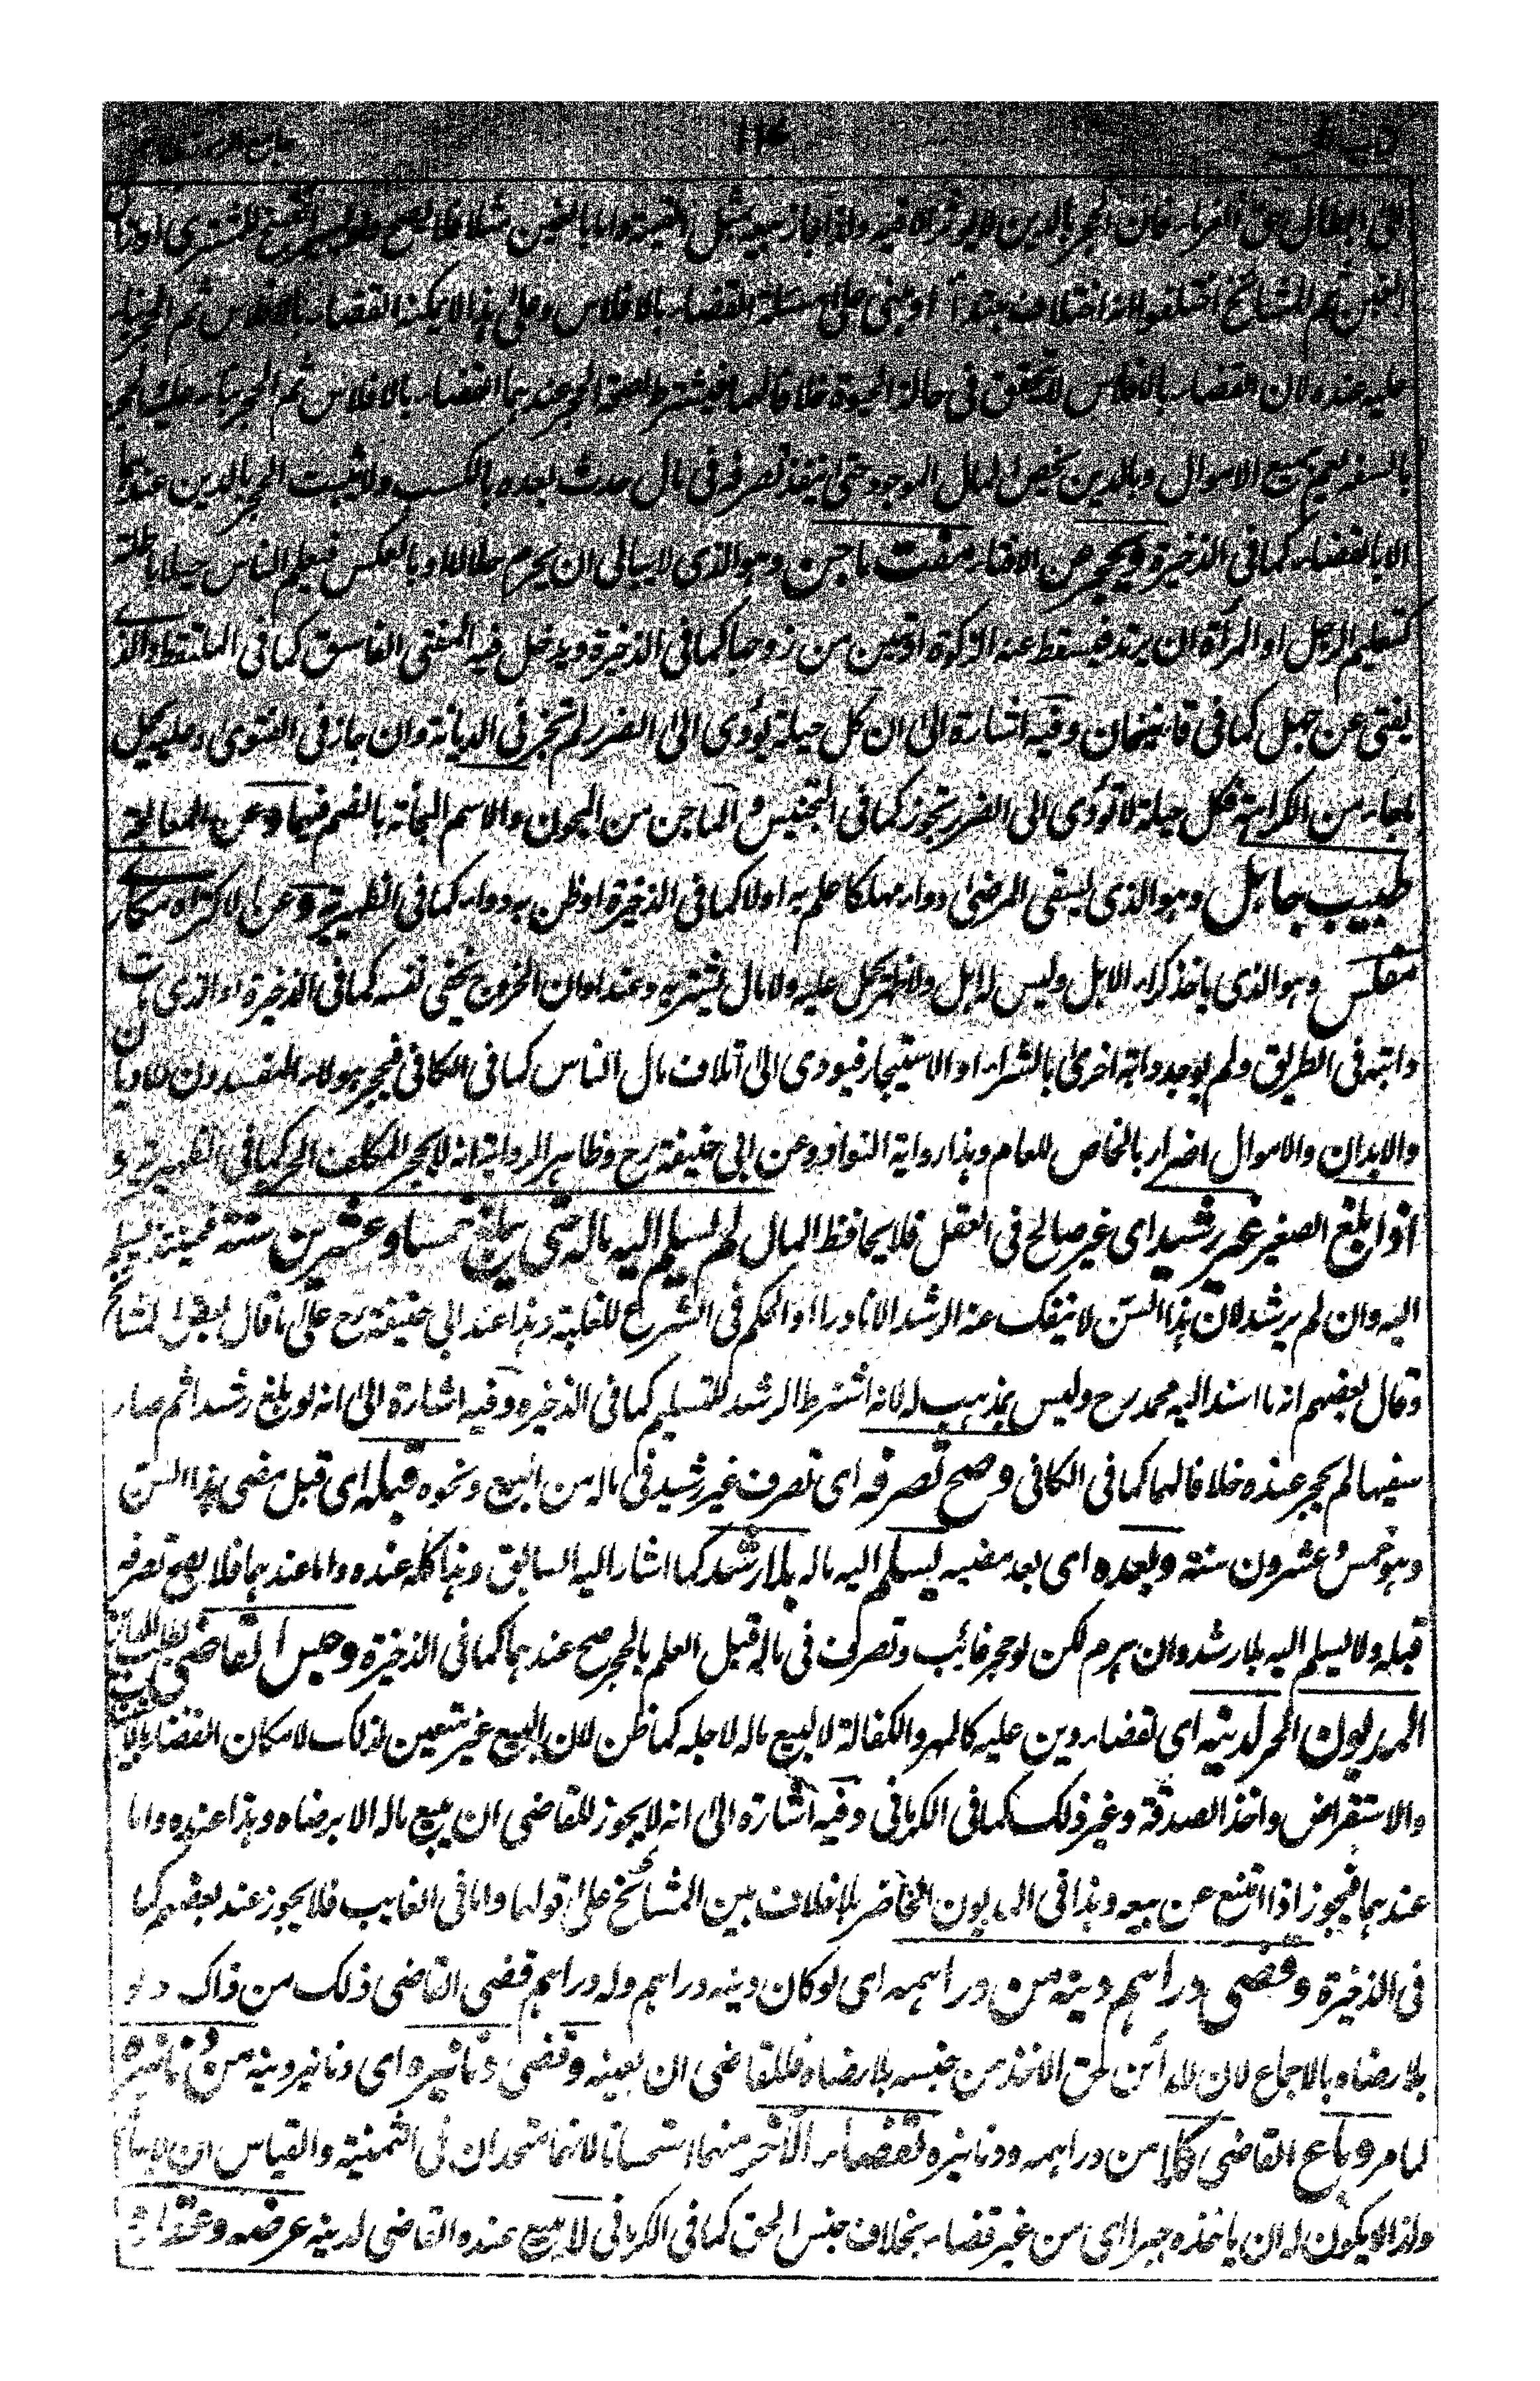 فى ابطال حق الغرماء فان الحجر بالدين لا يوثر الا فيه ولذا جاز بيعه بمثل القيمة واما بالغبن مثلا فلا يصح
الغبن ثم المشائخ اختلفوا انه اختلاف مبتدأ او مبنى على مسئلة القضاء بالافلاس وعلى هذا لا يمكنه القضاء بالافلاس ثم الحجر بناء
عليه عنده لان القضاء بالافلاس لا يتحقق فى حالة الحيوة خلافا لهما فيشترط لصحة الحجر عندهما القضاء بالافلاس ثم الحجر بناء عليه والحجر
بالسفه يعم جميع الاموال وبالدين يخص المال الموجود حتى ينفذ تصرفه فى مال حدث بعده بالكسب ولا يثبت الحجر بالدين عندهما
الا بالقضاء كما فى الذخيرة ويحجر عن الافتاء مفت ماجن وهو الذى لا يبالى ان يحرم حلالا او بالعكس فيعلم الناس حيلا باطلة
كتعليم الرجل او المرأة ان يرتد فيسقط عنه الزكوة او تبين من زوجها كما فى الذخيرة ويدخل فيه المفتى الفاسق كما فى الملتقط والذى
يفتى عن جهل كما فى قاضيخان وفيه اشارة الى ان كل حيلة يؤدى الى الضرر لم تجز فى الديانة وان جاز فى الفتوى وعليه يحمل
ماجاء من الكراهة فكل حيلة لا تؤدى الى الضرر تجوز كما فى التجنيس والماجن من المجون والاسم المجانة بالضم فيهما وعن المعالجة
طبيب جاهل وهو الذى يسقى المرضى دواء مهلكا علم به اولا كما فى الذخيرة او ظن به دواء كما فى الظهيرية وعن الاكتراء مكار
مفلس وهو الذى ياخذ كراء الابل وليس له ابل ولا ظهر يحمل عليه ولا مال يشتريه وعند اوان الخروج يخفى نفسه كما فى الذخيرة او الذى مات
دابته فى الطريق ولم يوجد دابة اخرى بالشراء او الاستيجار فيودى الى اتلاف مال الناس كما فى الكافى فيحجر هولاء المفسدون للاديان
والابدان والاموال اضرار بالخاص للعام وهذا رواية النوادر وعن ابى حنيفة رح وظاهر الرواية انه لا يحجر المكلف الحر كما فى الظهيرية و
اذا بلغ الصغير غير رشيد اى غير صالح فى العقل فلا يحافظ المال لم يسلم اليه ماله حتى يبلغ خمسا وعشرين سنة فحينئذ يسلم
اليه وان لم يرشد لان هذا السن لا ينفك عنه الرشد الا نادرا والحكم فى الشرع للغلبة وهذا عند ابى حنيفة رح على ما قال بعض المشائخ
وقال بعضهم انه ما اسند اليه محمد رح وليس بمذهب له لانه اشترط الرشد للتسليم كما فى الذخيره وفيه اشارة الى انه لو بلغ رشيدا ثم صار
سفيها لم يحجر عنده خلافا لهما كما فى الكافى وصح تصرفه اى تصرف غير رشيد فى ماله من البيع ونحوه قبله اى قبل مضى هذا السن
وهو خمس وعشرون سنة وبعده اى بعد مضيه يسلم اليه ماله بلا رشد كما اشار اليه السابق وهذا كله عنده واما عندهما فلا يصح تصرفه
قبله ولا يسلم اليه بلا رشد وان هرم لكن لو حجر غائب وتصرف فى ماله قبل العلم بالحجر صح عندهما كما فى الذخيرة وحبس القاضى
المديون الحر لدينه اى لقضاء دين عليه كالمهر والكفالة لا لبيع ماله لاجله كما ظن لان البيع غير متعين لذلك لامكان القضاء
والاستقراض واخذ الصدقة وغير ذلك كما فى الكرمانى وفيه اشارة الى انه لا يجوز للقاضى ان يبيع ماله الا برضاه وهذا عنده واما
عندهما فيجوز اذا امتنع عن بيعه وهذا فى المديون الحاضر بلا خلاف بين المشائخ على قولهما واما فى الغايب فلا يجوز عند بعضهم كما
فى الذخيرة وقضى دراهم دينه من دراهمه اى لو كان دينه دراهم وله دراهم قضى القاضى ذلك من ذاك ولو
بلا رضاه بالاجماع لان للدائن حق الاخذ من جنسه بلا رضاه فللقاضى ان يعينه وقضى دنانيره اى دنانير دينه من دنانيره
لما مر وباع القاضى كلا من دراهمه ودنانيره لقضاء الآخر منهما استحسانا لانهما متحدان فى الثمنية والقياس ان لا يباع
ولذا لا يكون له ان ياخذه جبرا اى من غير قضاء بخلاف جنس الحق كما فى الكرمانى لا يبيع عنده القاضى لدينه عرضه وعقاره